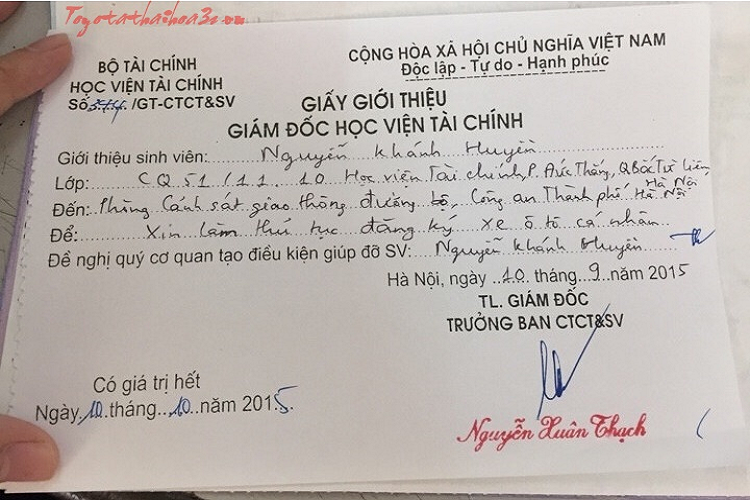 Toyotathaihoa3s.vn
BỘ TÀI CHÍNH
HỌC VIỆN TÀI CHÍNH
Số 574 /GT-CTCT&SV
CỘNG HÒA XÃ HỘI CHỦ NGHĨA VIỆT NAM
Độc lập - Tự do - Hạnh phúc
GIẤY GIỚI THIỆU
GIÁM ĐỐC HỌC VIỆN TÀI CHÍNH
Giới thiệu sinh viên: Nguyễn Khánh Huyền
Lớp: CQ51/11.10 Học viện Tài chính, P. Đức Thắng, Q Bắc Từ Liêm, Hà Nội
Đến: Phòng Cảnh sát giao thông đường bộ, Công an Thành phố Hà Nội
Để: Xin làm thủ tục đăng ký xe ô tô cá nhân
Đề nghị quý cơ quan tạo điều kiện giúp đỡ SV: Nguyễn Khánh Huyền
Hà Nội, ngày 10 tháng 9 năm 2015
TL. GIÁM ĐỐC
TRƯỞNG BAN CTCT&SV
Có giá trị hết
Ngày 10 tháng 10 năm 2015
Nguyễn Xuân Thạch